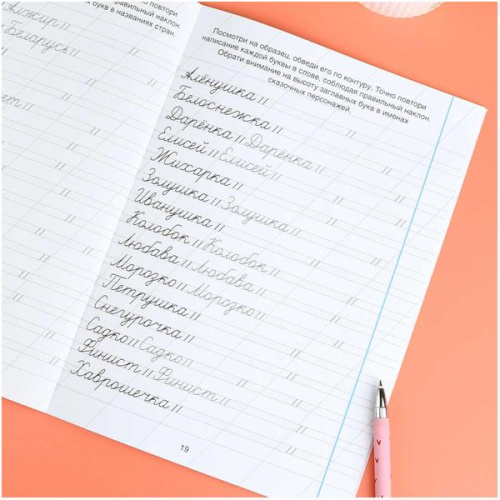 повтори
правильный наклон.
букв в названиях стран.
Алжир //
Беларусь //
Посмотри на образец, обведи его по контуру. Точно повтори
написание каждой буквы в слове, соблюдая правильный наклон.
Обрати внимание на высоту заглавных букв в именах
сказочных персонажей.
Алёнушка //
Белоснежка //
Дарёнка // Дарёнка //
Елисей // Елисей //
Жихарка //
Золушка // Золушка //
Иванушка //
Колобок // Колобок //
Любава // Любава //
Морозко // Морозко //
Петрушка //
Снегурочка //
Садко // Садко //
Финист // Финист //
Хаврошечка //
19